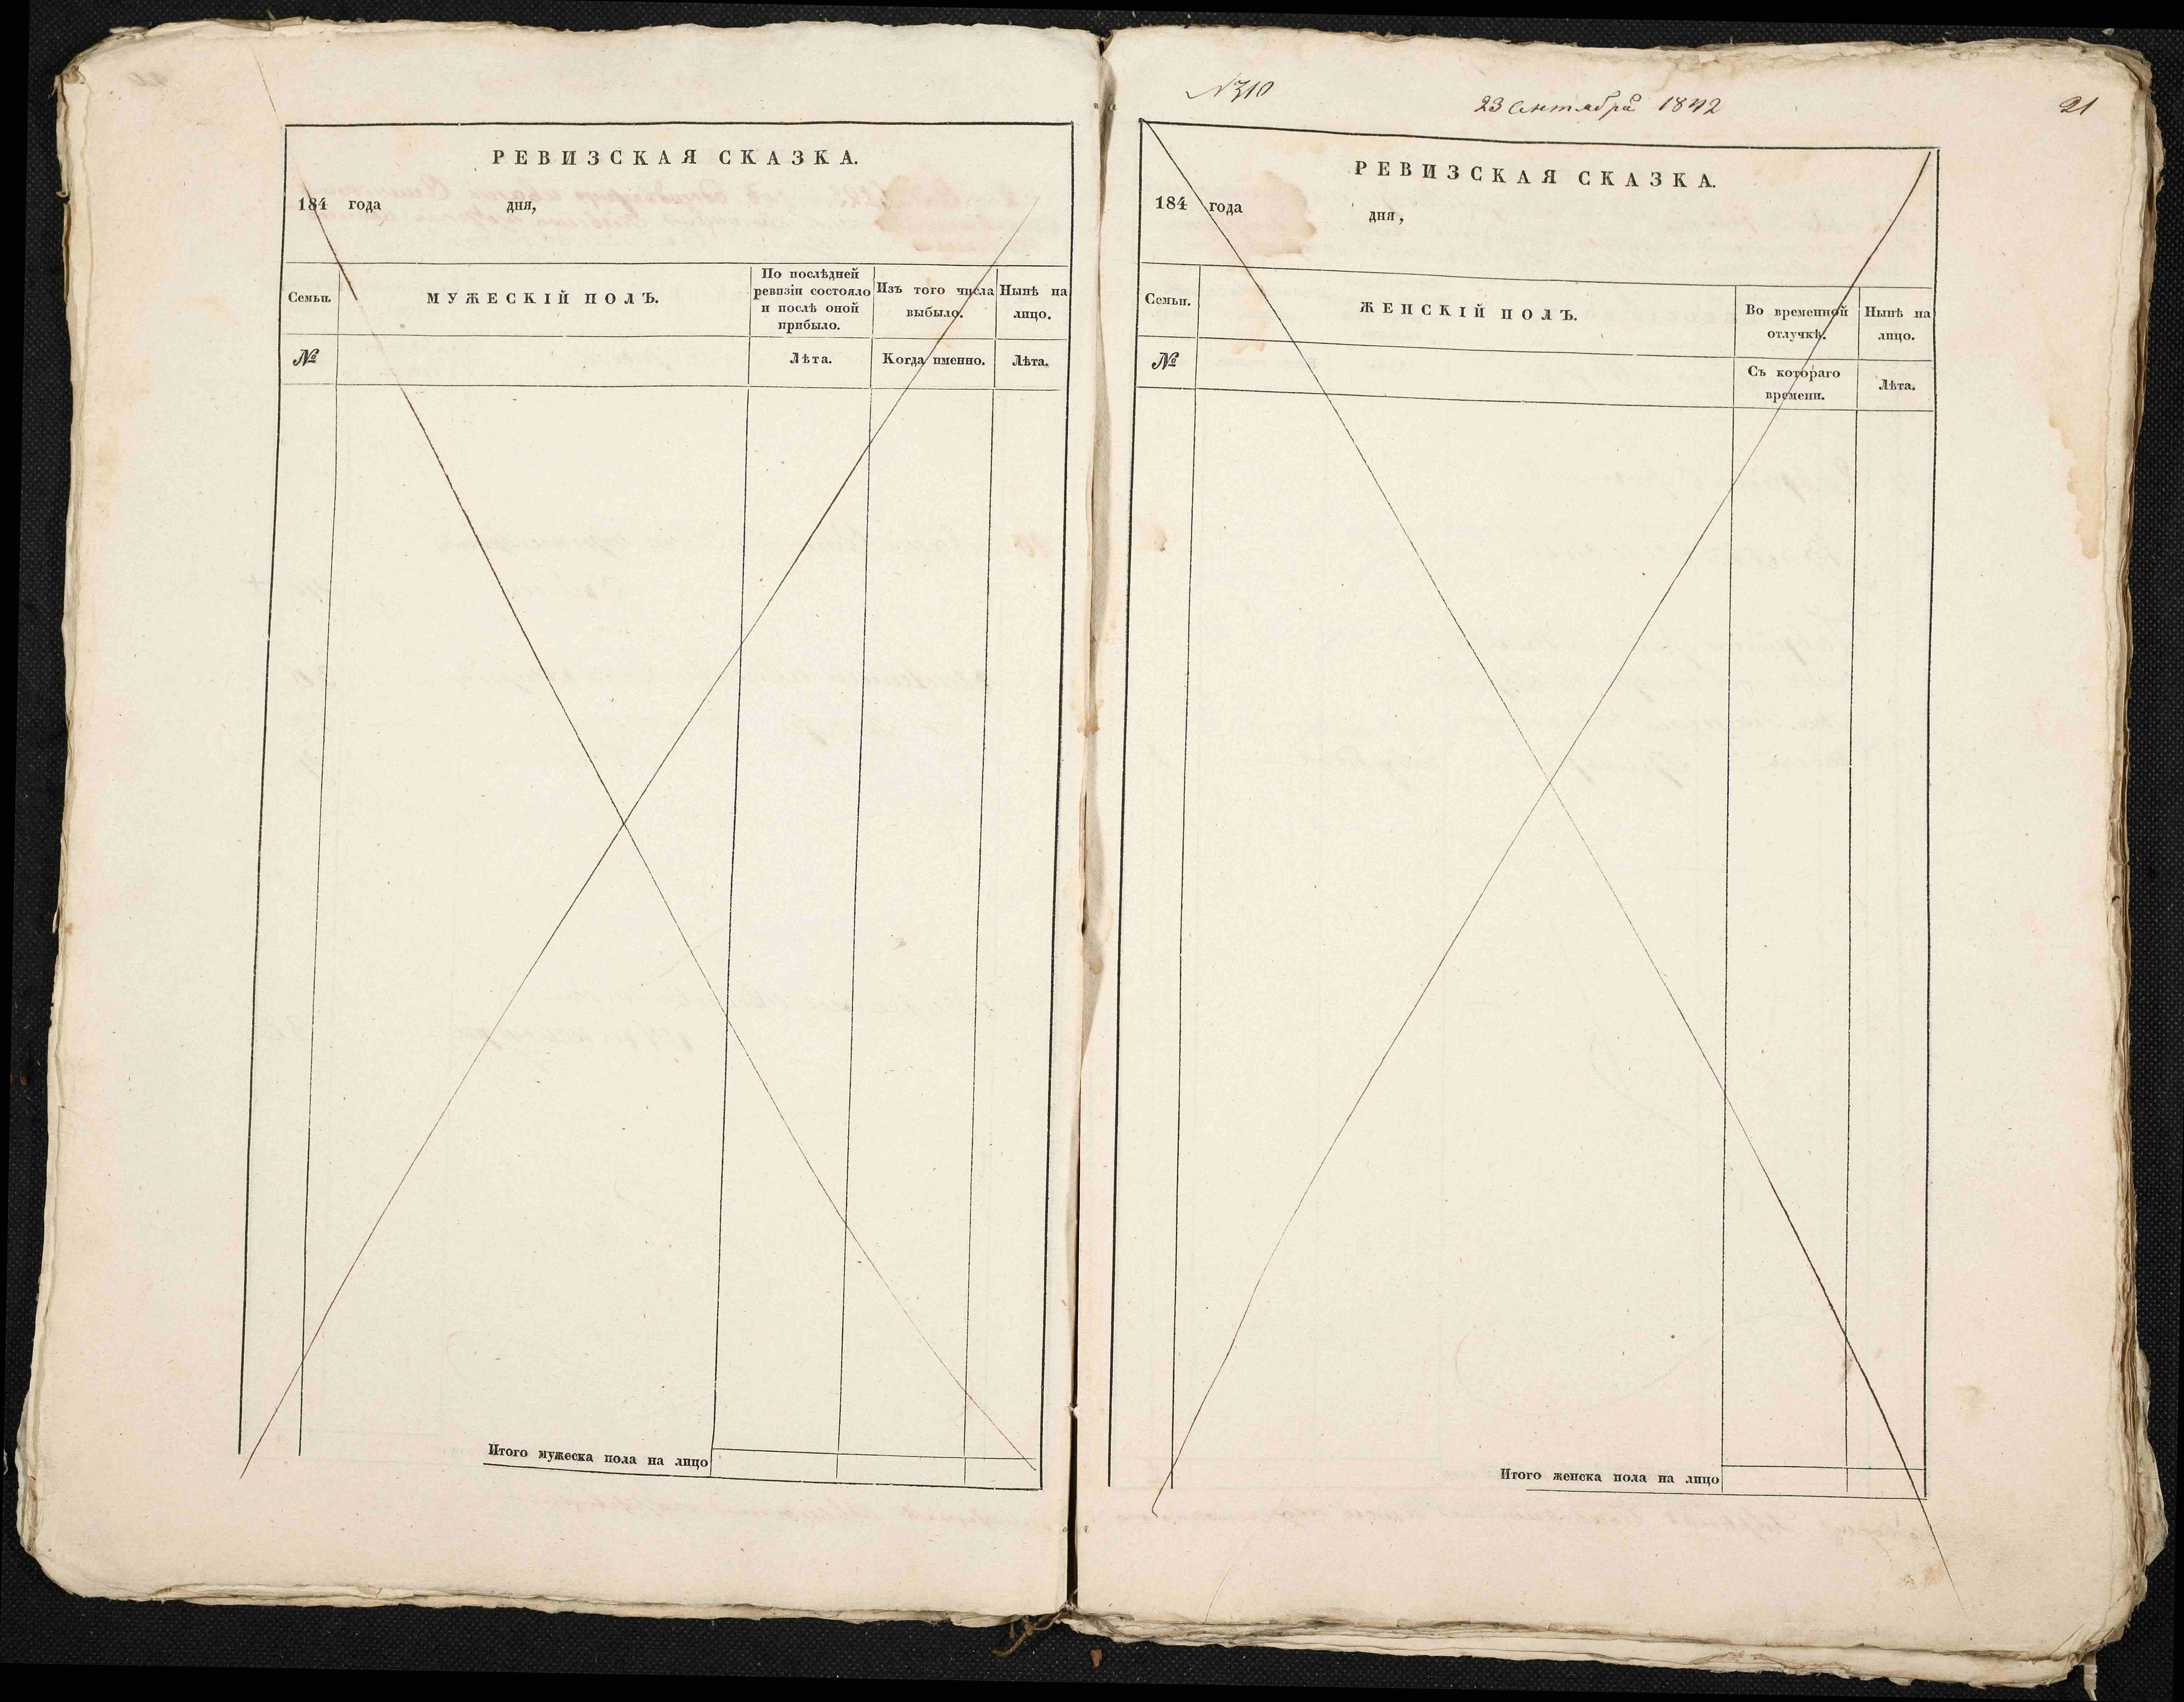 РЕВИЗСКАЯ СКАЗКА.
184 года дня,
Семьи.
МУЖЕСКІЙ ПОЛЪ.
По послѣдней
ревизіи состояло
и послѣ оной
прибыло.
Изъ того числа
выбыло.
Нынѣ на
лицо.
№
Лѣта.
Когда именно.
Лѣта.
Итого мужеска пола на лицо
№310
23 Сентября 1842
21
РЕВИЗСКАЯ СКАЗКА.
184 года дня,
Семьи.
ЖЕНСКІЙ ПОЛЪ.
Во временной
отлучкѣ.
Нынѣ на
лицо.
№
Съ котораго
времени.
Лѣта.
Итого женска пола на лицо